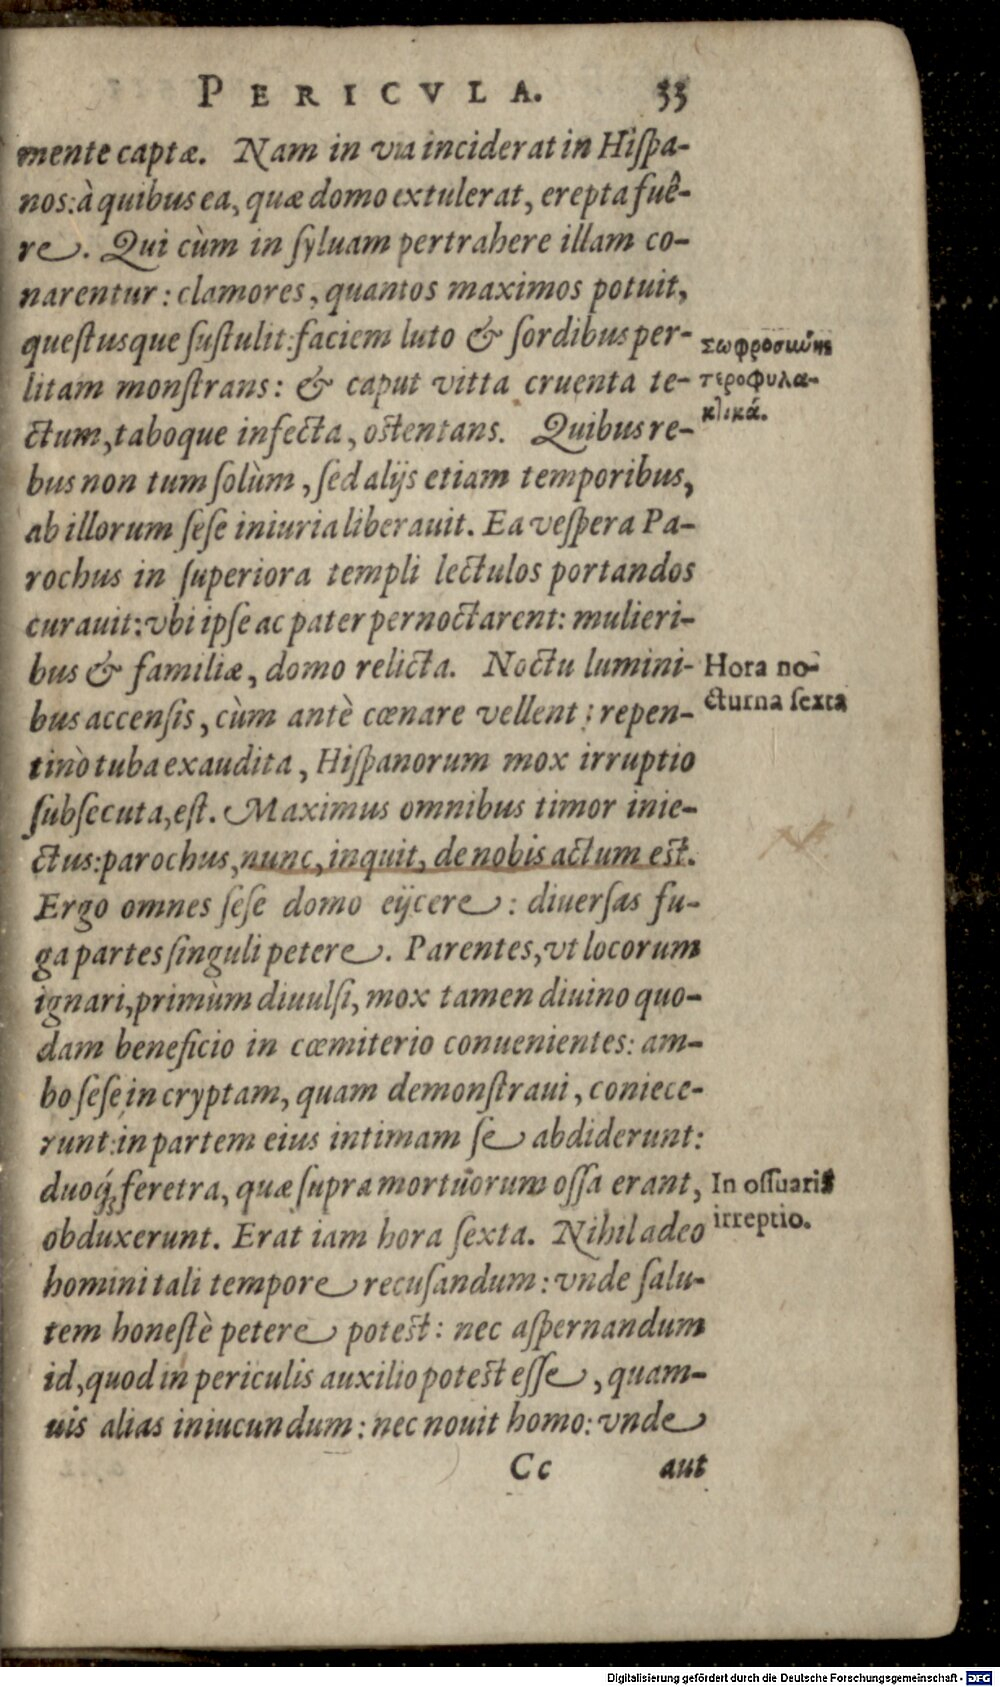 PERICVLA. 33
mente captæ. Nam in via inciderat in Hiſpa-
nos: à quibus ea, quæ domo extulerat, erepta fuê-
re. Qui cùm in ſyluam pertrahere illam co-
narentur: clamores, quantos maximos potuit,
queſtusque ſuſtulit: faciem luto & ſordibus per-
litam monſtrans: & caput vitta cruenta te-
ctum, taboque infecta, oſtentans. Quibus re-
bus non tum ſolùm, ſed alijs etiam temporibus,
ab illorum ſeſe iniuria liberauit. Ea veſpera Pa-
rochus in ſuperiora templi lectulos portandos
curauit: vbi ipſe ac pater pernoctarent: mulieri-
bus & familiæ, domo relicta. Noctu lumini-
Hora no-
cturna ſexta
bus accenſis, cùm antè cœnare vellent: repen-
tinò tuba exaudita, Hiſpanorum mox irruptio
ſubſecuta, eſt. Maximus omnibus timor inie-
ctus: parochus, nunc, inquit, de nobis actum eſt.
Ergo omnes ſeſe domo eijcere: diuerſas fu-
ga partes ſinguli petere. Parentes, vt locorum
ignari, primùm diuulſi, mox tamen diuino quo-
dam beneficio in cœmiterio conuenientes: am-
bo ſeſe in cryptam, quam demonſtraui, coniece-
runt: in partem eius intimam ſe abdiderunt:
duoq́; feretra, quæ ſupra mortuorum oſſa erant,
In oſſuariũ
irreptio.
obduxerunt. Erat iam hora ſexta. Nihil adeo
homini tali tempore recuſandum: vnde ſalu-
tem honeſtè petere poteſt: nec aſpernandum
id, quod in periculis auxilio poteſt eſſe, quam-
uis alias iniucundum: nec nouit homo: vnde
Cc aut
Digitalisierung gefördert durch die Deutsche Forschungsgemeinschaft - DFG